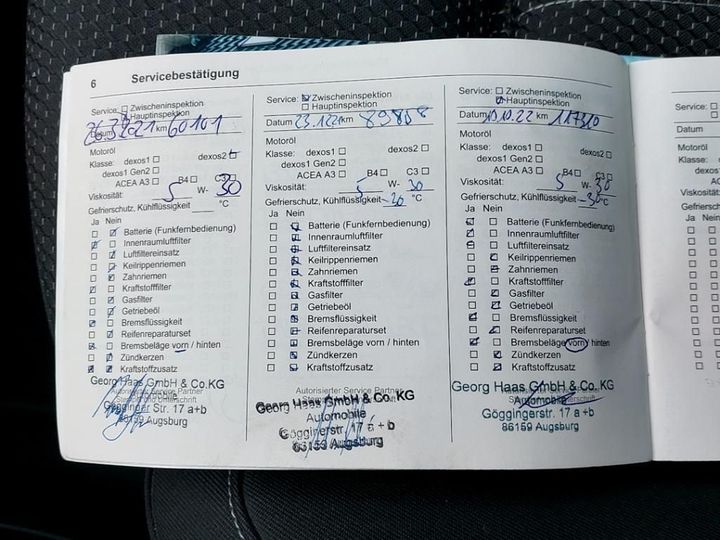 6 Servicebestätigung
Service: Zwischeninspektion
Hauptinspektion
Datum 26.3.2021 km 60101
Motoröl
Klasse: dexos1 dexos2
dexos1 Gen2
ACEA A3 B4 C3
Viskosität: 5 W- 30
Gefrierschutz, Kühlflüssigkeit °C
Ja Nein
Batterie (Funkfernbedienung)
Innenraumluftfilter
Luftfiltereinsatz
Keilrippenriemen
Zahnriemen
Kraftstofffilter
Gasfilter
Getriebeöl
Bremsflüssigkeit
Reifenreparaturset
Bremsbeläge vorn / hinten
Zündkerzen
Kraftstoffzusatz
Georg Haas GmbH & Co. KG
Autorisierter Service Partner
Gögginger Str. 17 a+b
86159 Augsburg
Service: Zwischeninspektion
Hauptinspektion
Datum 23.12.21 km 89808
Motoröl
Klasse: dexos1 dexos2
dexos1 Gen2
ACEA A3 B4 C3
Viskosität: 5 W- 30
Gefrierschutz, Kühlflüssigkeit °C
Ja Nein
Batterie (Funkfernbedienung)
Innenraumluftfilter
Luftfiltereinsatz
Keilrippenriemen
Zahnriemen
Kraftstofffilter
Gasfilter
Getriebeöl
Bremsflüssigkeit
Reifenreparaturset
Bremsbeläge vorn / hinten
Zündkerzen
Kraftstoffzusatz
Autorisierter Service Partner
Georg Haas GmbH & Co. KG
Automobile
Gögginerstr. 17 a + b
86159 Augsburg
Service: Zwischeninspektion
Hauptinspektion
Datum 10.10.22 km 117320
Motoröl
Klasse: dexos1 dexos2
dexos1 Gen2
ACEA A3 B4 C3
Viskosität: 5 W- 30
Gefrierschutz, Kühlflüssigkeit -30 °C
Ja Nein
Batterie (Funkfernbedienung)
Innenraumluftfilter
Luftfiltereinsatz
Keilrippenriemen
Zahnriemen
Kraftstofffilter
Gasfilter
Getriebeöl
Bremsflüssigkeit
Reifenreparaturset
Bremsbeläge vorn / hinten
Zündkerzen
Kraftstoffzusatz
Georg Haas GmbH & Co. KG
Automobile
Gögginerstr. 17 a + b
86159 Augsburg
Service:
Datum
Motoröl
Klasse:
Viskosität:
Gefrierschutz
Ja Nein